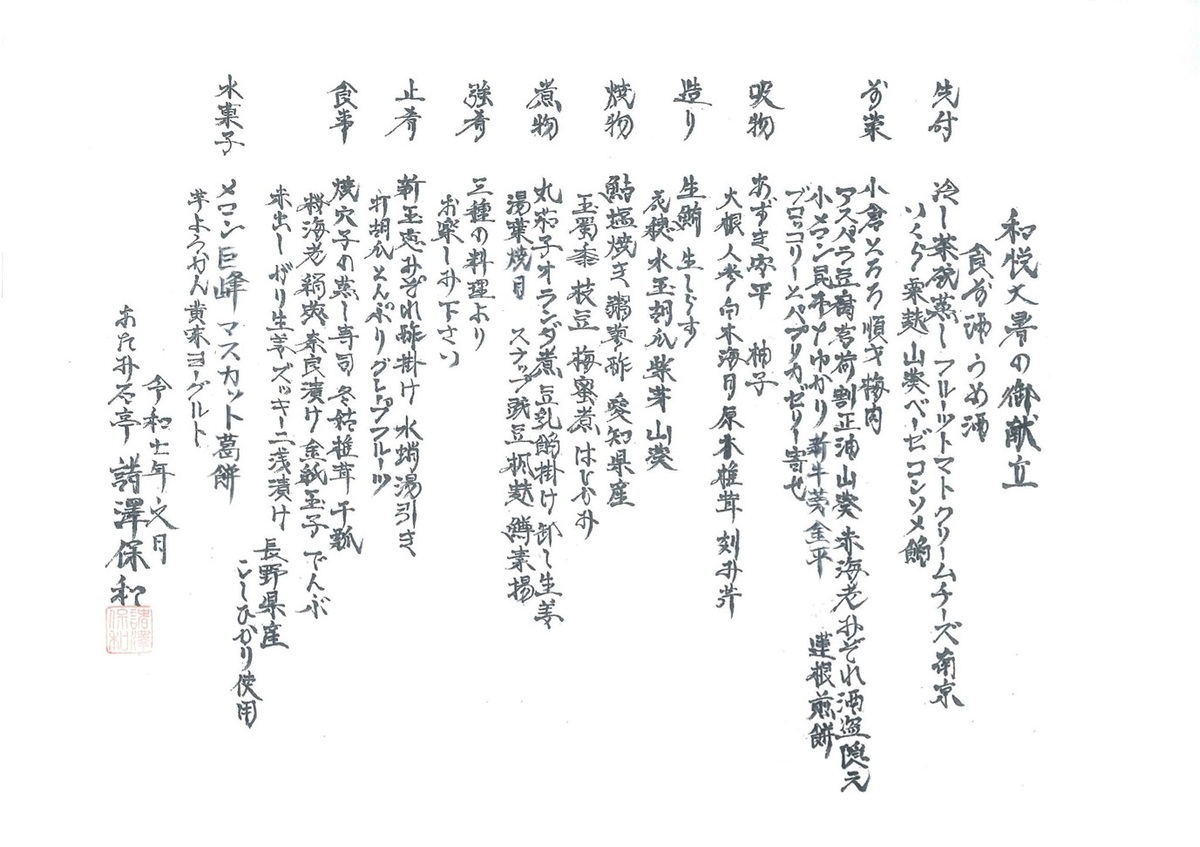 和悦大暑の御献立
食前酒 うめ酒
先付 冷し茶碗蒸し フルーツトマト クリームチーズ 南京
いくら 粟麩 山葵 ベーゼコンソメ餡
前菜 小倉とろろ 順才 梅肉
アスパラ豆腐 茗荷 割正油 山葵 朱海老 みぞれ 酒盗 隠元
小メロン 昆布 〆ゆかり 新牛蒡金平 蓮根煎餅
ブロッコリーとパプリカゼリー寄せ
吸物 あずき安平 柚子
大根 人参 白木海月 原木椎茸 刻み芹
造り 生鮪 生しらす
花穂 水玉胡瓜 紫芽 山葵
焼物 鮎塩焼き 粥蓼酢 愛知県産
玉蜀黍 枝豆 梅蜜煮 はじかみ
煮物 丸茄子オランダ煮 豆乳餡掛け 卸し生姜
湯葉焼目 スナップ豌豆 楓麩 鱒素揚
強肴 三種の料理より
お楽しみ下さい
止肴 新玉恵みぞれ酢掛け 水蛸湯引き
打胡瓜 とんぶり グレープフルーツ
食事 焼穴子の蒸し寿司 冬姑椎茸 干瓢
桜海老 絹爽 奈良漬け 金紙玉子 でんぶ
米出し がり生姜 ズッキーニ浅漬け
長野県産
こしひかり使用
水菓子 メロン 巨峰 マスカット 葛餅
芋ようかん 黄味ヨーグルト
令和七年 文月
あたみ石亭 諸澤保和
諸澤保和